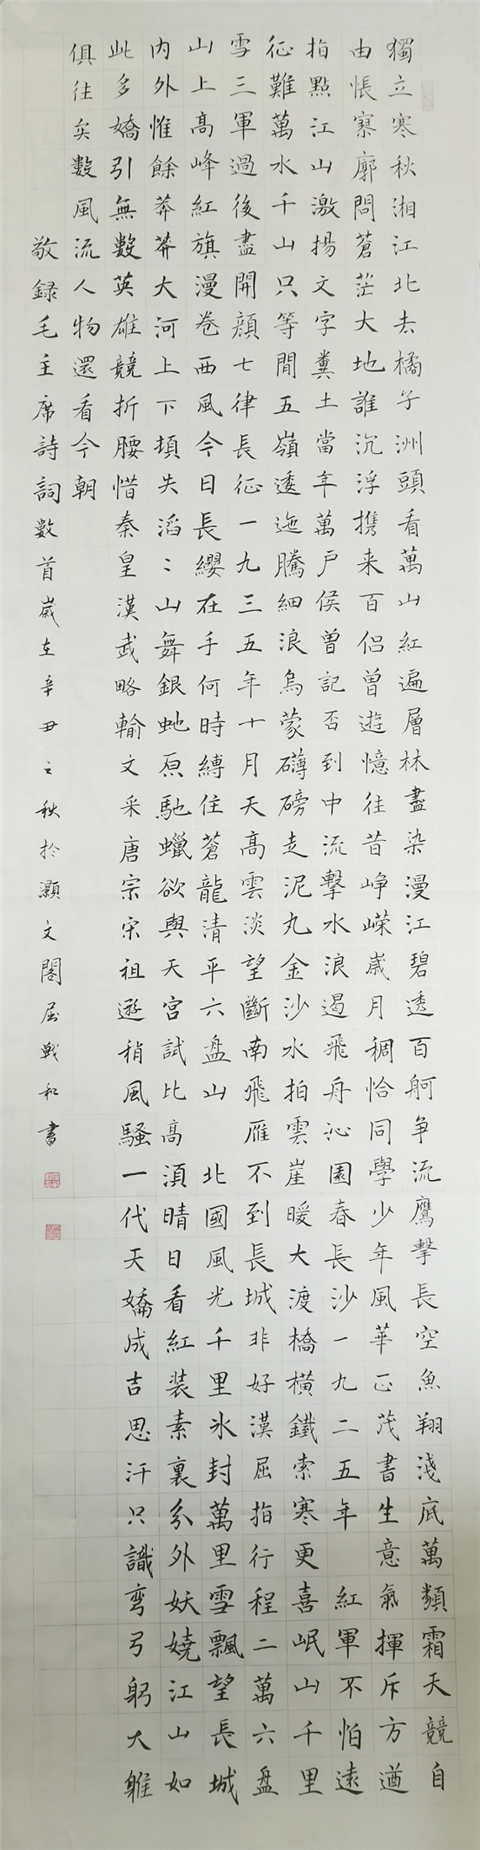 獨立寒秋湘江北去橘子洲頭看萬山紅遍層林盡染漫江碧透百舸爭流鷹擊長空魚翔淺底萬類霜天競自
由悵寥廓問蒼茫大地誰沉浮携来百侣曾遊憶往昔崢嶸歲月稠恰同學少年風華正茂書生意氣揮斥方遒
指點江山激揚文字糞土當年萬户侯曾記否到中流擊水浪遏飛舟沁園春長沙一九二五年 紅軍不怕遠
征難萬水千山只等閒五嶺逶迤騰細浪烏蒙礴磅走泥丸金沙水拍雲崖暖大渡橋橫鐵索寒更喜岷山千里
雪三軍過後盡開顔七律長征一九三五年十月天高雲淡望斷南飛雁不到長城非好漢屈指行程二萬六盘
山上高峰紅旗漫卷西風今日長纓在手何時縛住蒼龍清平六盘山 北國風光千里氷封萬里雪飄望長城
内外惟餘莽莽大河上下頓失滔〻山舞銀虵原馳蠟欲與天宫試比高須晴日看紅装素裏分外妖嬈江山如
此多嬌引無數英雄競折腰惜秦皇漢武略輸文采唐宗宋祖遊稍風騷一代天嬌成吉思汗只識彎弓躬大雕
俱往矣數風流人物還看今朝
敬録毛主席詩詞數首歲在辛丑之秋於灝文閣屈戰和書